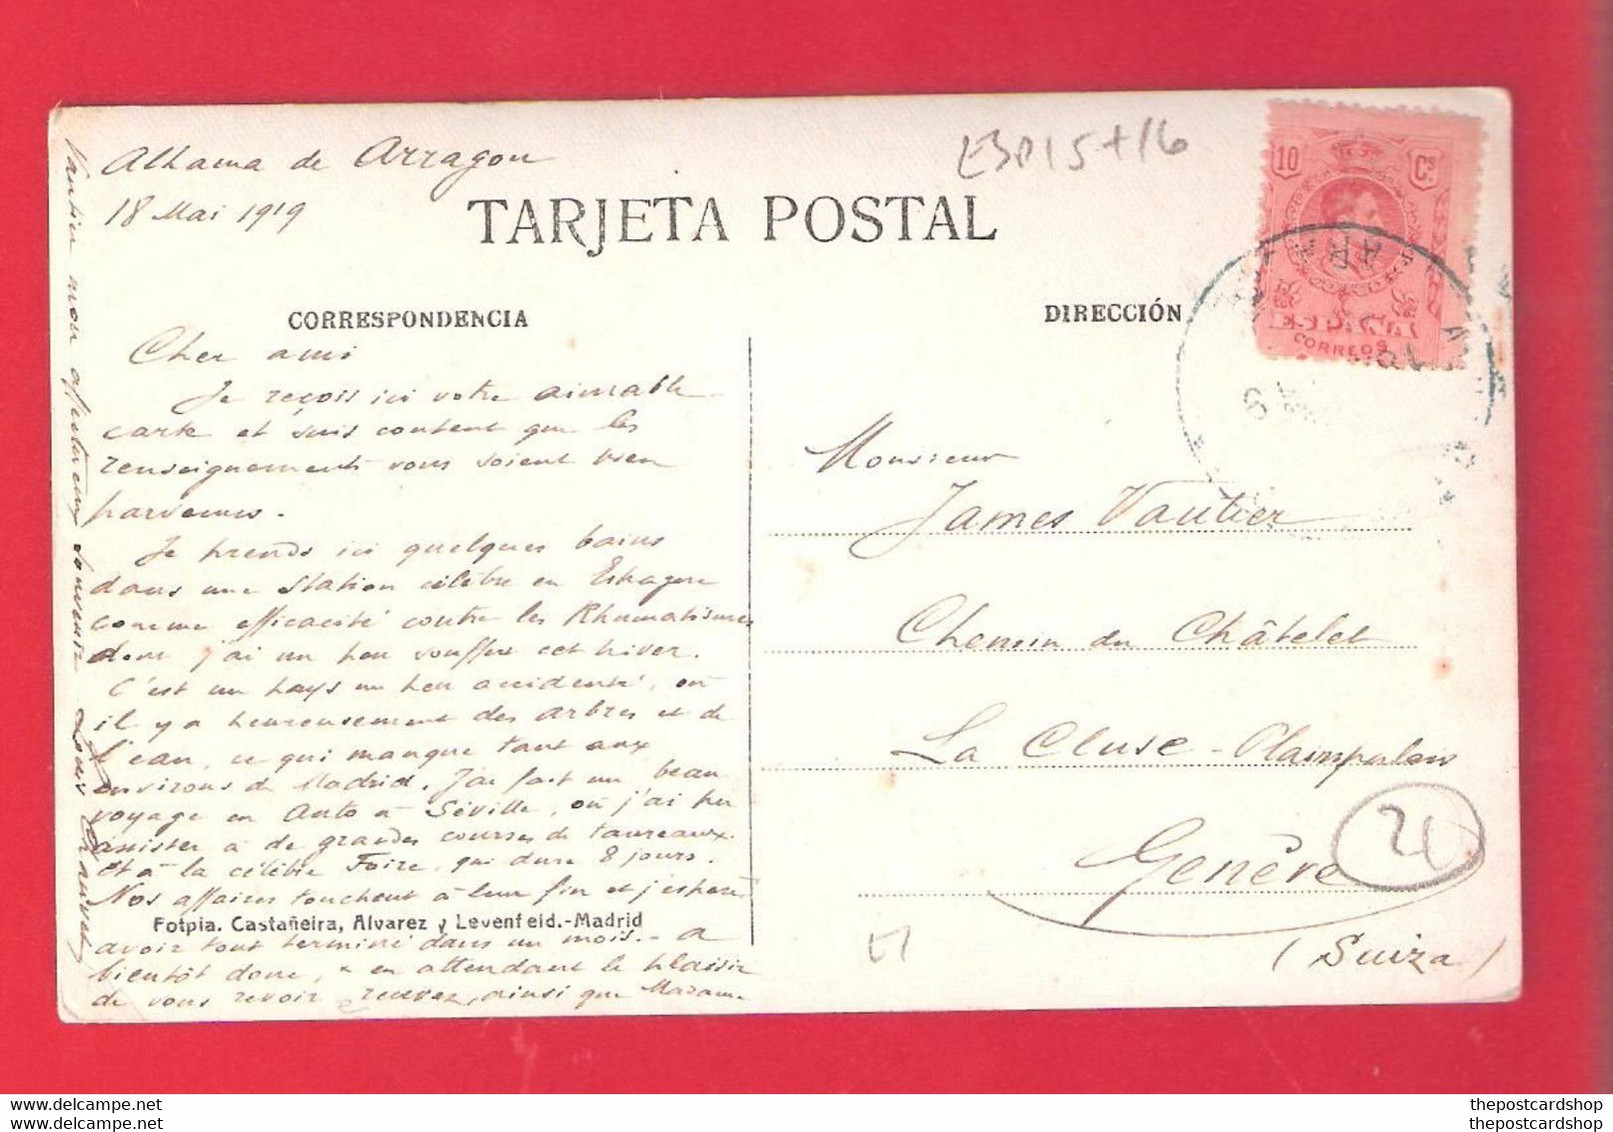 Alhama de Arragon
18 Mai 1919
TARJETA POSTAL
CORRESPONDENCIA
DIRECCIÓN
10 Cs.
ESPAÑA
CORREOS
Cher ami
Je reçois ici votre aimable
carte et suis content que les
renseignements vous soient bien
parvenus.
Je prends ici quelques bains
dans une station célèbre en Espagne
comme efficacité contre les Rhumatismes
dont j'ai un peu souffert cet hiver.
C'est un pays un peu accidenté, où
il y a heureusement des arbres et de
l'eau, ce qui manque tant aux
environs de Madrid. J'ai fait un beau
voyage en Auto à Séville, où j'ai pu
assister à de grandes courses de taureaux.
Et à la célèbre Foire, qui dure 8 jours.
Nos affaires touchent à leur fin et j'espère
Fotpia. Castañeira, Alvarez y Levenfeld.-Madrid
avoir tout terminé dans un mois. - A
bientôt donc, en attendant le plaisir
de vous revoir recevez, ainsi que Madame
Vautier mon affectueux souvenir Louis
Monsieur
James Vautier
Chemin du Châtelet
La Cluse - Plainpalais
Genève
(Suiza)
24
thepostcardshop
thepostcardshop.com
thepostcardshop
thepostcardshop.com